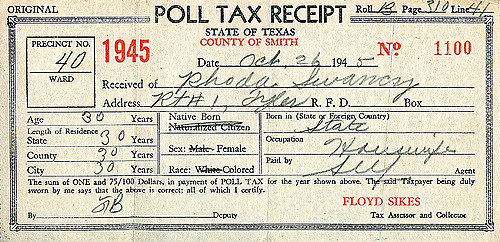 ORIGINAL POLL TAX RECEIPT Roll B Page 310 Line 41
STATE OF TEXAS
COUNTY OF SMITH
PRECINCT NO. 40 WARD
1945
No 1100
Date Oct. 26 1945
Received of Rhoda Swancy
Address Rt # 1, Tyler R. F. D. Box
Age 30 Years
Length of Residence
State 30 Years
County 30 Years
City 30 Years
Native Born
Naturalized Citizen
Sex: Male Female
Race: White Colored
Born in (State or Foreign Country)
State
Occupation Housewife
Paid by Self Agent
The sum of ONE and 75/100 Dollars, in payment of POLL TAX for the year shown above. The said Taxpayer being duly
sworn by me says that the above is correct; all of which I certify.
FLOYD SIKES
By JB Deputy Tax Assessor and Collector